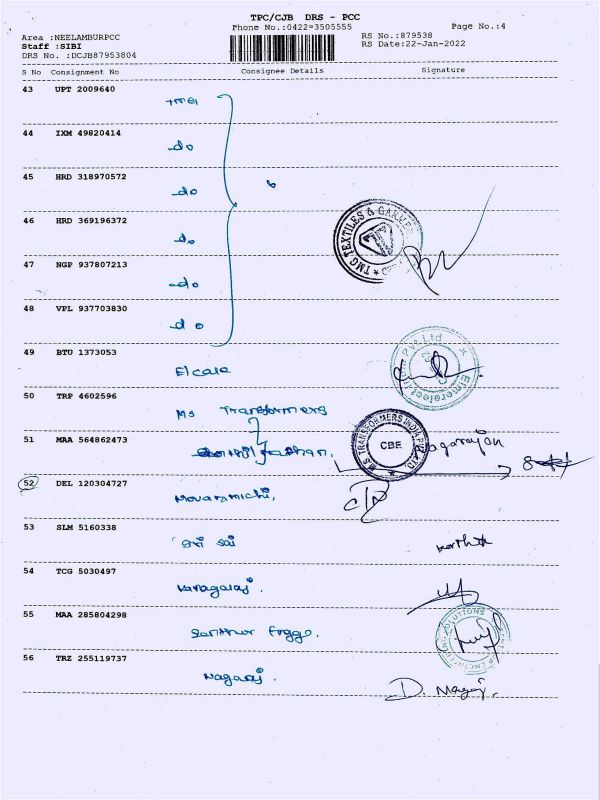 TPC/CJB DRS - PCC
Phone No.:0422=3505555
Page No.:4
Area :NEELAMBURPCC
RS No.:879538
Staff :SIBI
RS Date:22-Jan-2022
DRS No. :DCJB87953804
S No Consignment No Consignee Details Signature
43 UPT 2009640
TMG
44 IXM 49820414
do
45 HRD 318970572
do
46 HRD 369196372
do
TMG TEXTILES & GARMEN
47 NGP 937807213
do
48 VPL 937703830
do
49 BTU 1373053
Elcare
Pvt.Ltd
50 TRP 4602596
Ms Transformers
51 MAA 564862473
M.S. TRANSFORMERS INDIA
CBE
52 DEL 120304727
53 SLM 5160338
Sri Sai
54 TCG 5030497
Kanagaraj.
55 MAA 285804298
SOLUTIONS
56 TRZ 255119737
Nagaraj.